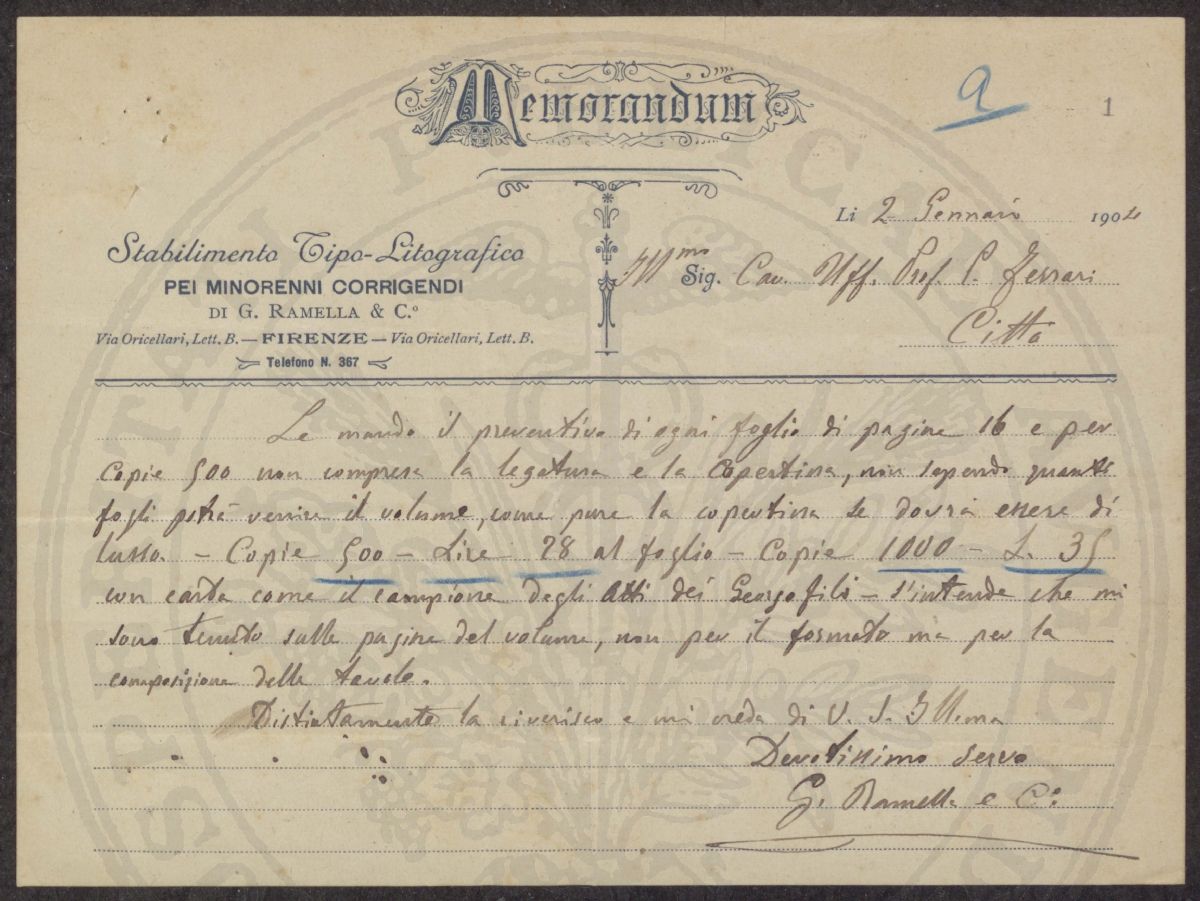 Memorandum
a
1
Li 2 Gennaio 1904
Stabilimento Tipo-Litografico
PEI MINORENNI CORRIGENDI
DI G. RAMELLA & C.º
Via Oricellari, Lett. B. — FIRENZE — Via Oricellari, Lett. B.
Telefono N. 367
Illmo Sig. Cav. Uff. Prof. P. Ferrari
Città
Le mando il preventivo di ogni foglio di pagine 16 e per
Copie 500 non compresa la legatura e la Copertina, non sapendo quanti
fogli potrà venire il volume, come pure la copertina se dovrà essere di
lusso. - Copie 500 - Lire 28 al foglio - Copie 1000 - L. 35
con carta come il campione degli Atti dei Georgofili - S'intende che mi
sono tenuto sulle pagine del volume, non per il formato ma per la
composizione delle tavole.
Distintamente la riverisco e mi creda di V. S. Illema
Devotissimo servo
G. Ramella e C.º